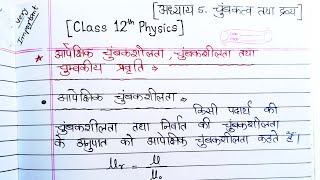 Very Important
[अध्याय 5. चुंबकत्व तथा द्रव्य]
[Class 12th Physics]
★ आपेक्षिक चुंबकशीलता, चुंबकशीलता तथा
चुम्बकीय प्रवृति :-
• आपेक्षिक चुंबकशीलता :-
किसी पदार्थ की
चुंबकशीलता तथा निर्वात की चुंबकशीलता
के अनुपात को आपेक्षिक चुंबकशीलता कहते हैं।
μr = μ/μ₀